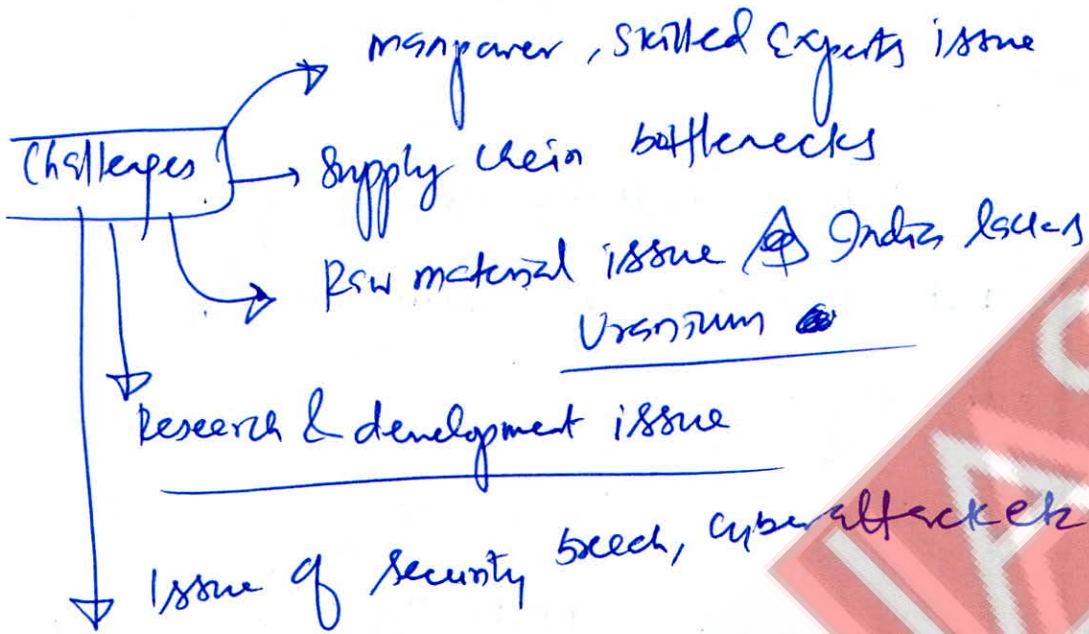 manpower, skilled Experts issue
Challenges
Supply chain bottlenecks
Raw material issue India lacks
Uranium
Research & development issue
Issue of security breech, cyber attack etc
IAS